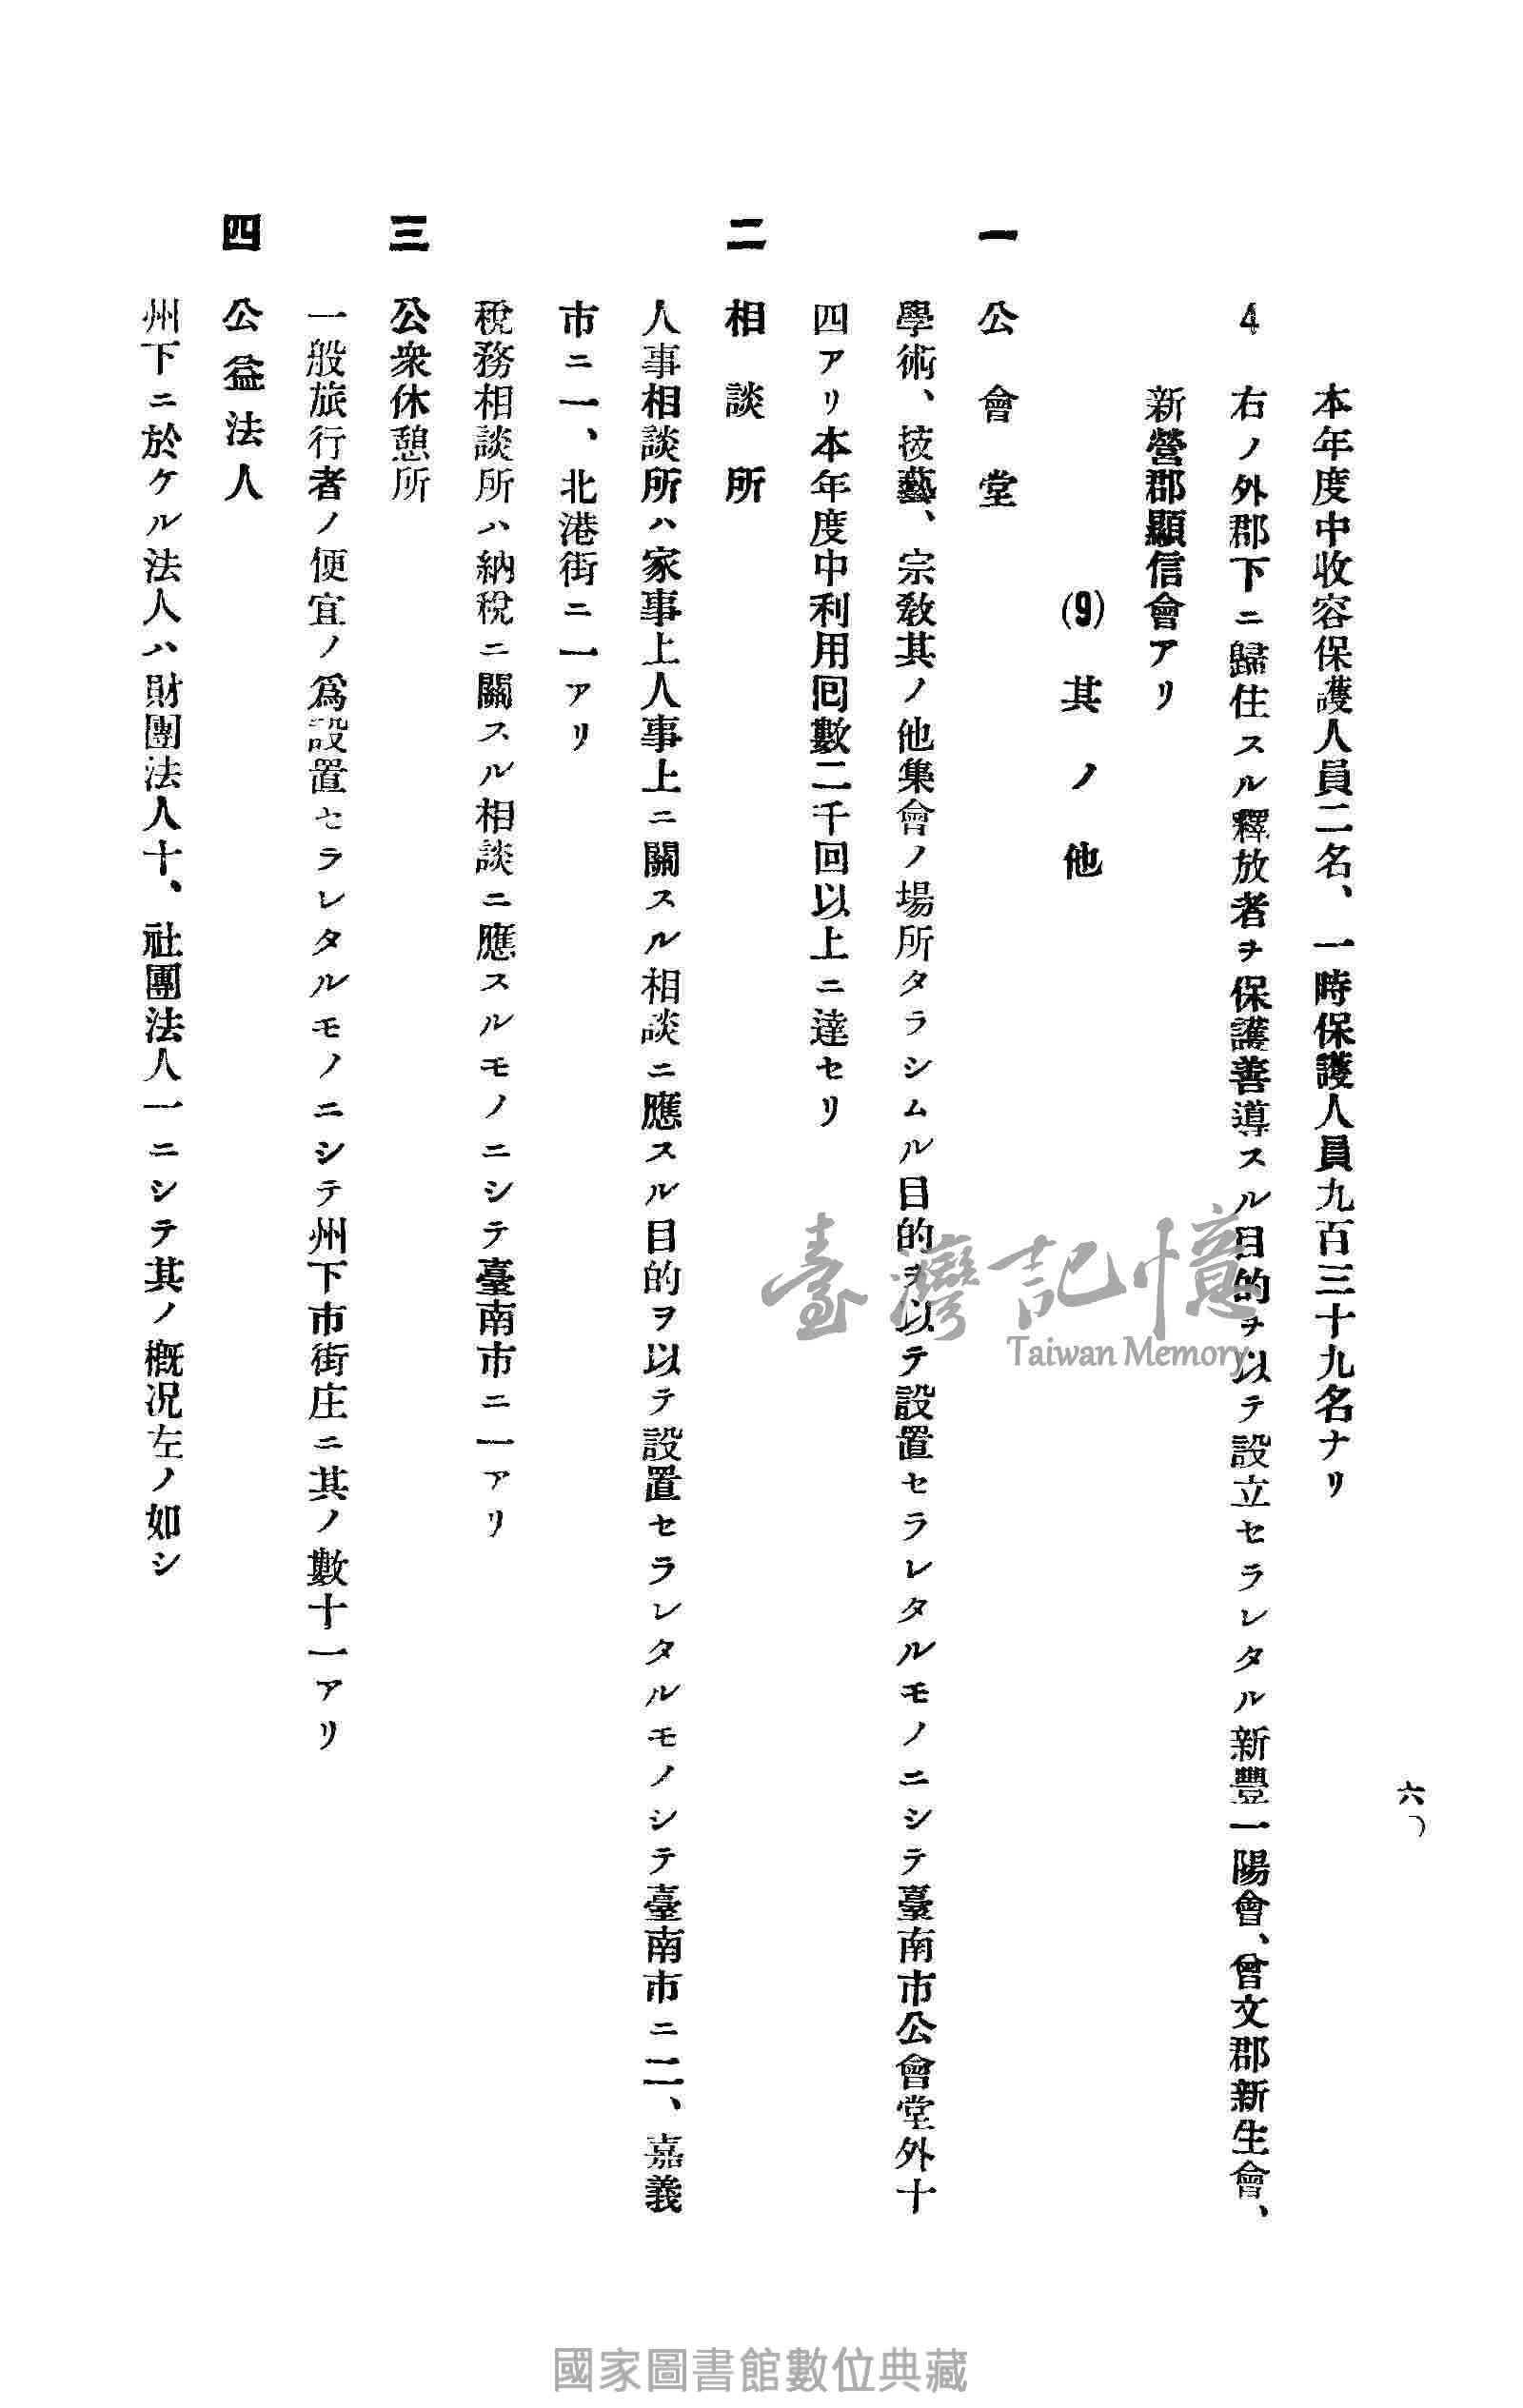 六〇
本年度中收容保護人員二名、一時保護人員九百三十九名ナリ
4 右ノ外郡下ニ歸住スル釋放者ヲ保護善導スル目的ヲ以テ設立セラレタル新豐一陽會、曾文郡新生會、
新營郡顯信會アリ
(9) 其ノ他
一 公會堂
學術、技藝、宗敎其ノ他集會ノ場所タラシムル目的ヲ以テ設置セラレタルモノニシテ臺南市公會堂外十
四アリ本年度中利用囘數二千回以上ニ達セリ
二 相談所
人事相談所ハ家事上人事上ニ關スル相談ニ應スル目的ヲ以テ設置セラレタルモノシテ臺南市ニ二、嘉義
市ニ一、北港街ニ一アリ
稅務相談所ハ納稅ニ關スル相談ニ應スルモノニシテ臺南市ニ一アリ
三 公衆休憩所
一般旅行者ノ便宜ノ爲設置セラレタルモノニシテ州下市街庄ニ其ノ數十一アリ
四 公益法人
州下ニ於ケル法人ハ財團法人十、社團法人一ニシテ其ノ槪況左ノ如シ
臺灣記憶
Taiwan Memory
國家圖書館數位典藏